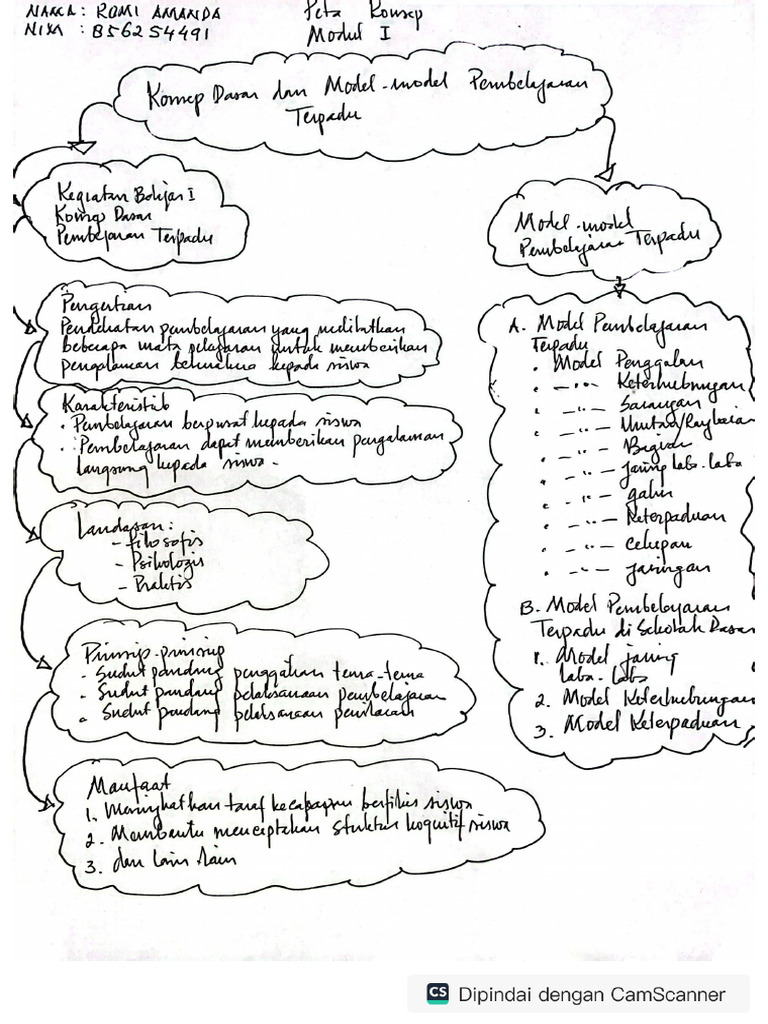 NAMA: ROMI AMANDA
NIM : 856254491
Peta Konsep
Modul I
Konsep Dasar dan Model-model Pembelajaran
Terpadu
Kegiatan Belajar I
Konsep Dasar
Pembelajaran Terpadu
Pengertian
Pendekatan pembelajaran yang melibatkan
beberapa mata pelajaran untuk memberikan
pengalaman bermakna kepada siswa
Karakteristik
• Pembelajaran berpusat kepada siswa
• Pembelajaran dapat memberikan pengalaman
langsung kepada siswa.
Landasan:
- Filosofis
- Psikologis
- Praktis
Prinsip-prinsip
- Sudut pandang penggalian tema-tema
- Sudut pandang pelaksanaan pembelajaran
- Sudut pandang pelaksanaan penilaian
Manfaat
1. Meningkatkan taraf kecakapan berfikir siswa
2. Membantu menciptakan struktur kognitif siswa
3. dan lain lain
Model-model
Pembelajaran Terpadu
A. Model Pembelajaran
Terpadu
• Model Penggalan
• -"- Keterhubungan
• -"- Sarangan
• -"- Urutan/Rangkaian
• -"- Bagian
• -"- jaring laba-laba
• -"- galur
• -"- Keterpaduan
• -"- celupan
• -"- jaringan
B. Model Pembelajaran
Terpadu di Sekolah Dasar
1. Model jaring
laba-laba
2. Model Keterhubungan
3. Model Keterpaduan
CS Dipindai dengan CamScanner